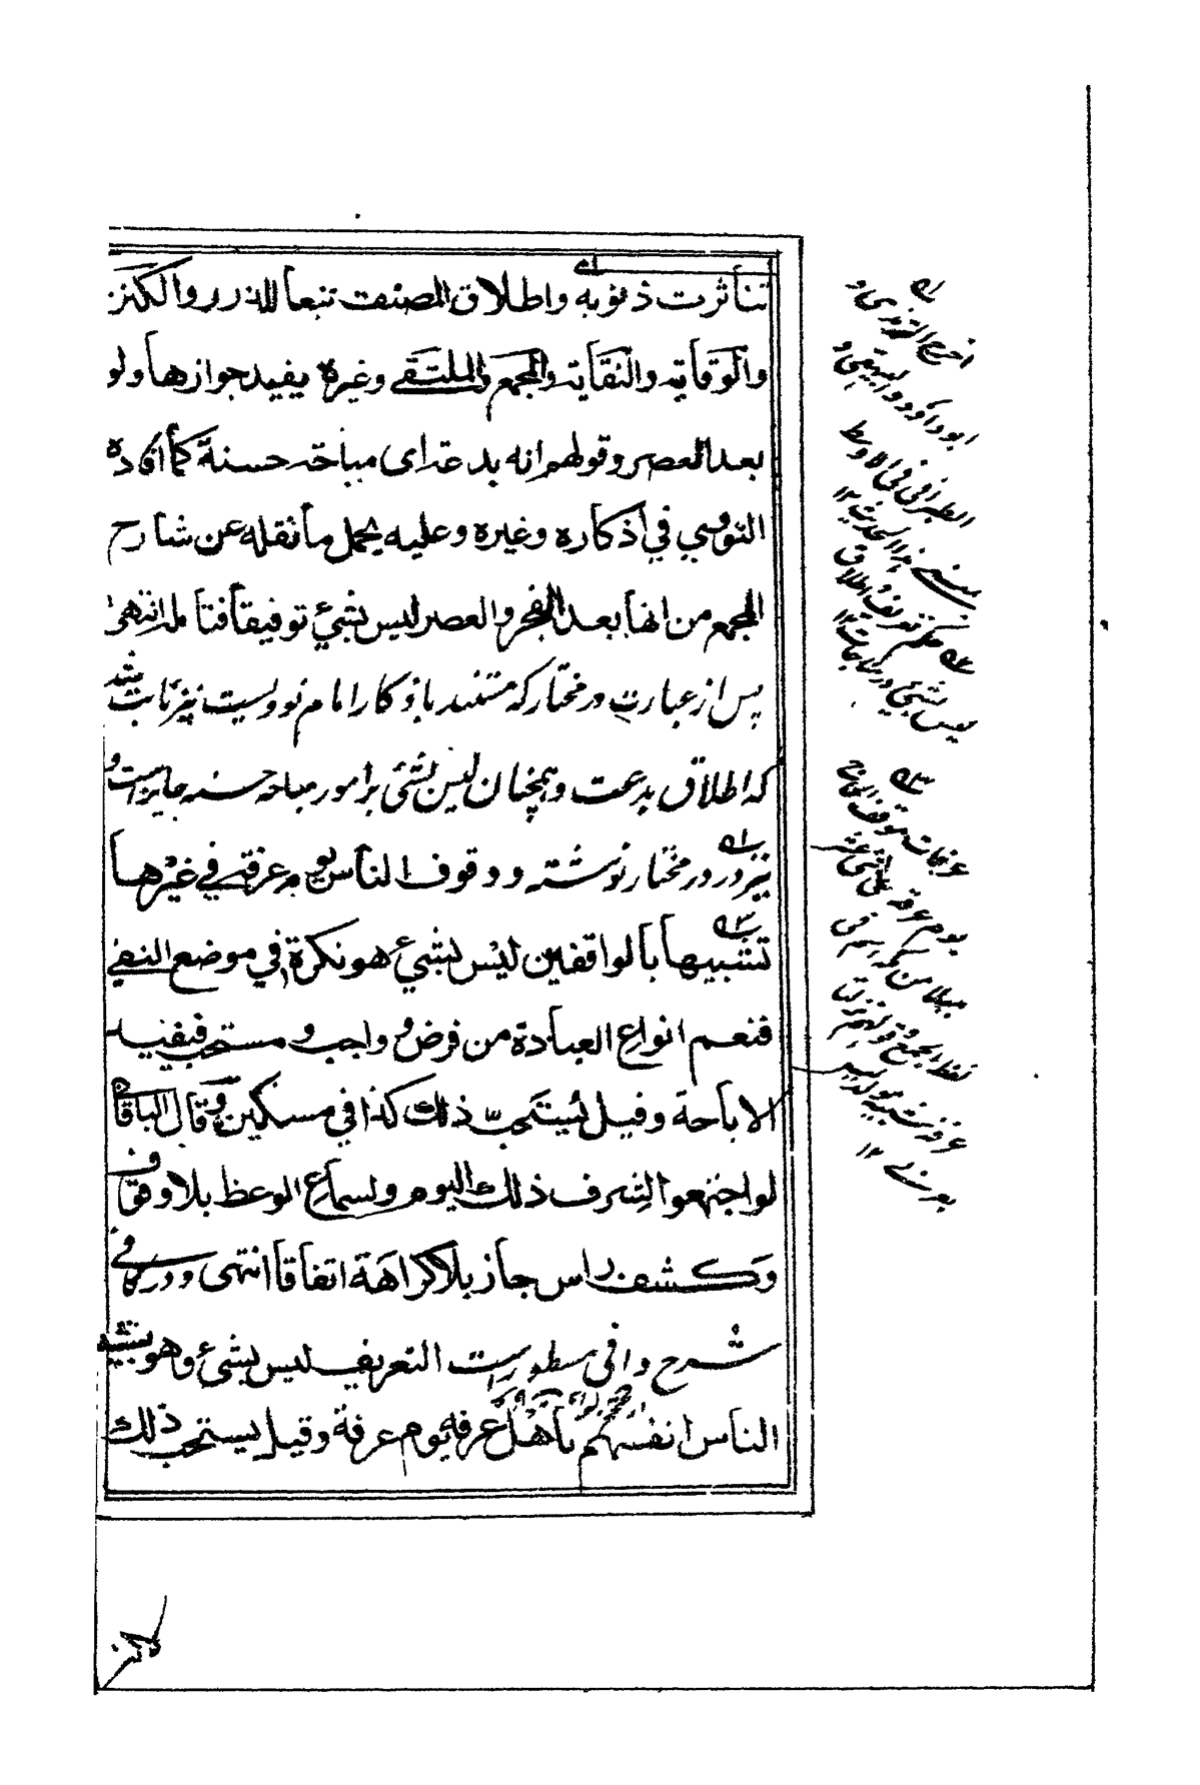 تناثرت ذنوبه واطلاق المصنف تبعا للدرر والكنز
والوقاية والنقاية والمجمع والملتقى وغيره يفيد جوازها ولو
بعد العصر وقولهم انه بدعة اى مباحة حسنة كما افاده
النووي في أذكاره وغيره وعليه يحمل ما نقله عن شارح
المجمع من انها بعد الفجر والعصر ليس بشيء توفيقا فتامله انتهى
پس از عبارت در مختار که مستند باذکار امام نوویست نیز ثابت شد
که اطلاق بدعت وهمچنان لیس بشئ بر امور مباحه حسنه جایز است و
نیز در در مختار نوشته ووقوف الناس يوم عرفة في غيرها
تشبيها بالواقفين ليس بشيء هو نكرة في موضع النفي
فتعم انواع العبادة من فرض وواجب ومستحب فيفيد
الاباحة وقيل يستحب ذلك كذا في مسكين وقال الباقاني
لو اجتمعوا لشرف ذلك اليوم ولسماع الوعظ بلا وقوف
وكشف راس جاز بلا كراهة اتفاقا انتهى ودر کافی
شرح وافی مسطور است التعريف ليس بشيء وهو تشبيه
الناس انفسهم بأهل عرفة يوم عرفة وقيل يستحب ذلك
اخرج الترمذى و
ابو داؤد والبيهقى و
الطبرانى فى الاوسط